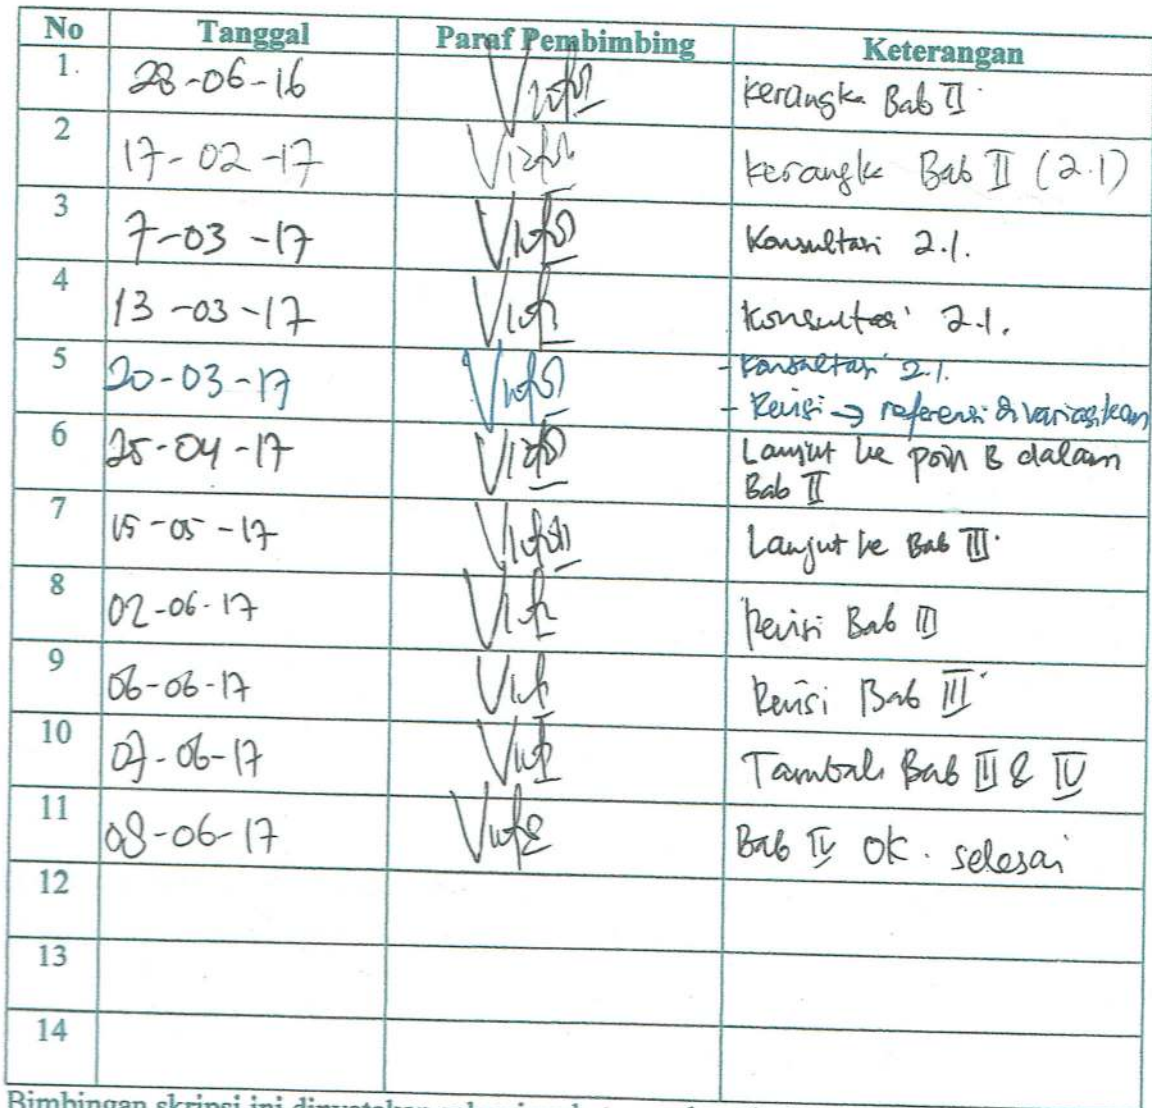 No Tanggal Paraf Pembimbing Keterangan
1. 28-06-16 kerangka Bab II
2 17-02-17 kerangka Bab II (2.1)
3 7-03-17 Konsultasi 2.1.
4 13-03-17 Konsultasi 2.1.
5 20-03-17 - Konsultasi 2.1.
- Revisi → referensi divariasikan
6 25-04-17 Lanjut ke poin B dalam
Bab II
7 15-05-17 Lanjut ke Bab III
8 02-06-17 Revisi Bab III
9 06-06-17 Revisi Bab III
10 07-06-17 Tambah Bab III & IV
11 08-06-17 Bab IV OK. selesai
12
13
14
Bimbingan skripsi ini dinyatakan